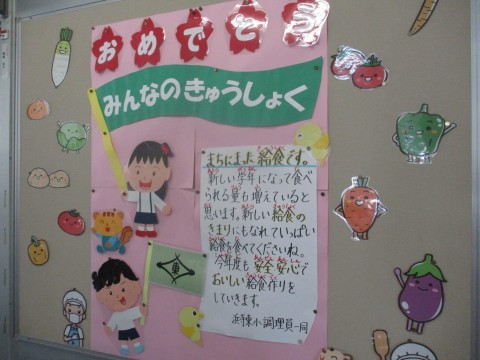 おめでとう
みんなのきゅうしょく
まちにまった給食です。
新しい学年になって食べ
られる量も増えていると
思います。新しい給食の
きまりにもなれていっぱい
給食を食べてくださいね。
今年度も安全安心で
おいしい給食作りを
していきます。
浜東小調理員一同
東